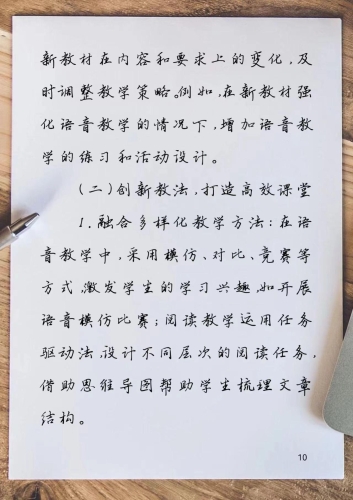 新教材在内容和要求上的变化,及
时调整教学策略。例如,在新教材强
化语音教学的情况下,增加语音教
学的练习和活动设计。
(二)创新教法,打造高效课堂
1.融合多样化教学方法:在语
音教学中,采用模仿、对比、竞赛等
方式,激发学生的学习兴趣,如开展
语音模仿比赛;阅读教学运用任务
驱动法,设计不同层次的阅读任务,
借助思维导图帮助学生梳理文章
结构。
10